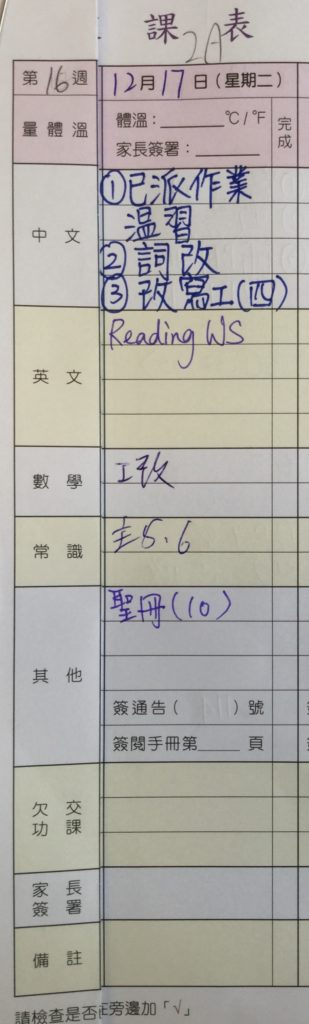 課 2A 表
第 16 週 12 月 17 日 (星期二)
量體溫 體溫：______°C/°F 完成
家長簽署：______
中文 ①已派作業
温習
②詞改
③改寫工(四)
英文 Reading WS
數學 工改
常識 主5.6
其他 聖冊(10)
簽通告( )號
簽閱手冊第____頁
欠交功課
家長簽署
備註
請檢查是否在旁邊加「√」